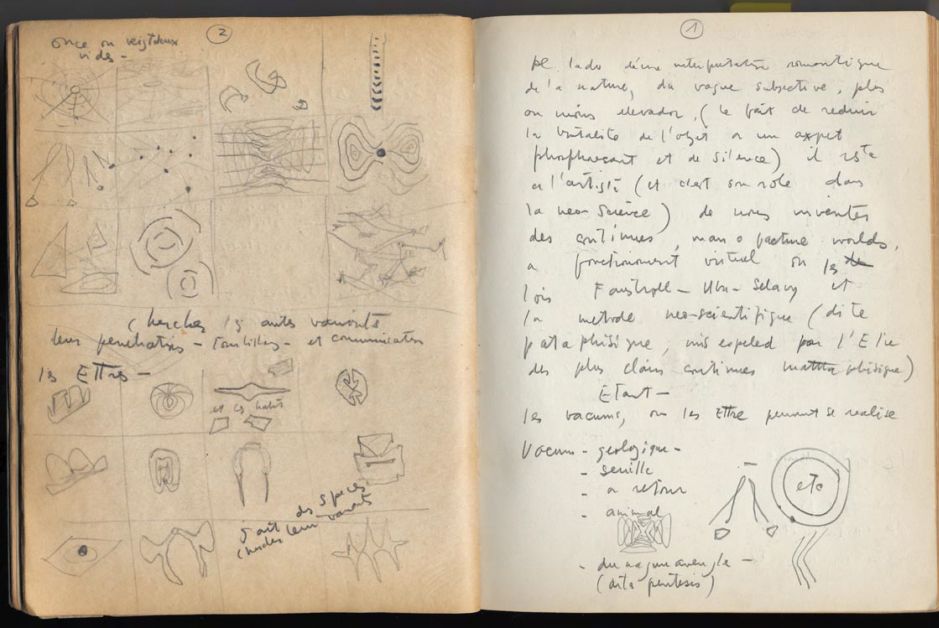 2
once ou veigtdeux
vides -
(cherches 15 autes varionts
leur penetrations - tourbillons - et communication
les Ettres -
et les habits
des speces
leur varants
1
de l'ado d'une interpretation romantique
de la nature, du vague subsective, plus
ou moins elevador, (le fait de reduire
la brutalite de l'objet a un aspet
phosphorecant et de silence) il reste
a l'artiste (et c'est son role dans
la neo Science) de nous inventer
des continues, man o facture worlds,
a fonctionement virtuel ou les
lois Faustroll - Ubu - Selavy et
la metode neo-scientifique (dite
pataphisique, mis expeled par l'Elie
des plus clairs continues phisique)
Etant -
les vacums, ou les Ettre peuvent se realise
Vacum - geologique -
- senille
- a retour
- animal
etc
- du vague aveugle -
(dita pentesis)